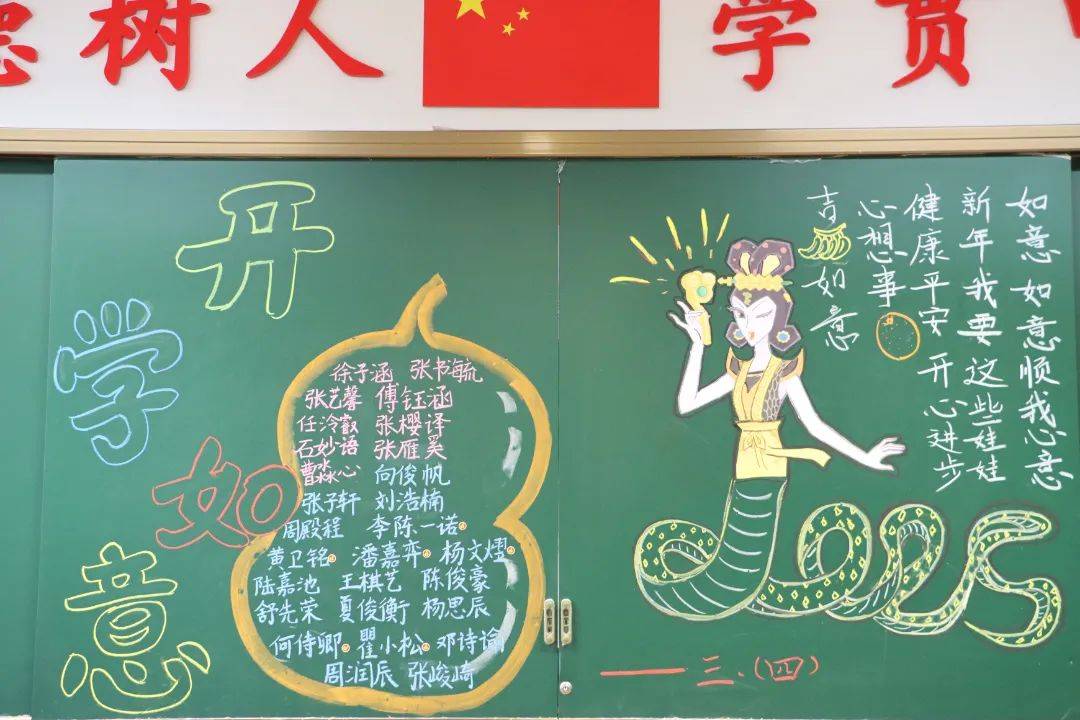 树人 学贯
开
学
如
意
徐子涵 张书毓
张艺馨 傅钰涵
任泠叡 张樱译
石妙语 张雁奚
曹淼心 向俊帆
张子轩 刘浩楠
周殿程 李陈一诺
黄卫铭 潘嘉弈 杨文熠
陆嘉池 王棋艺 陈俊豪
舒先荣 夏俊衡 杨思辰
何侍卿 瞿小松 邓诗谕
周润辰 张峻崎
如意如意顺我心意
新年我要这些娃娃
健康平安 开心进步
心想事
吉 如意
2025
——三.(四)